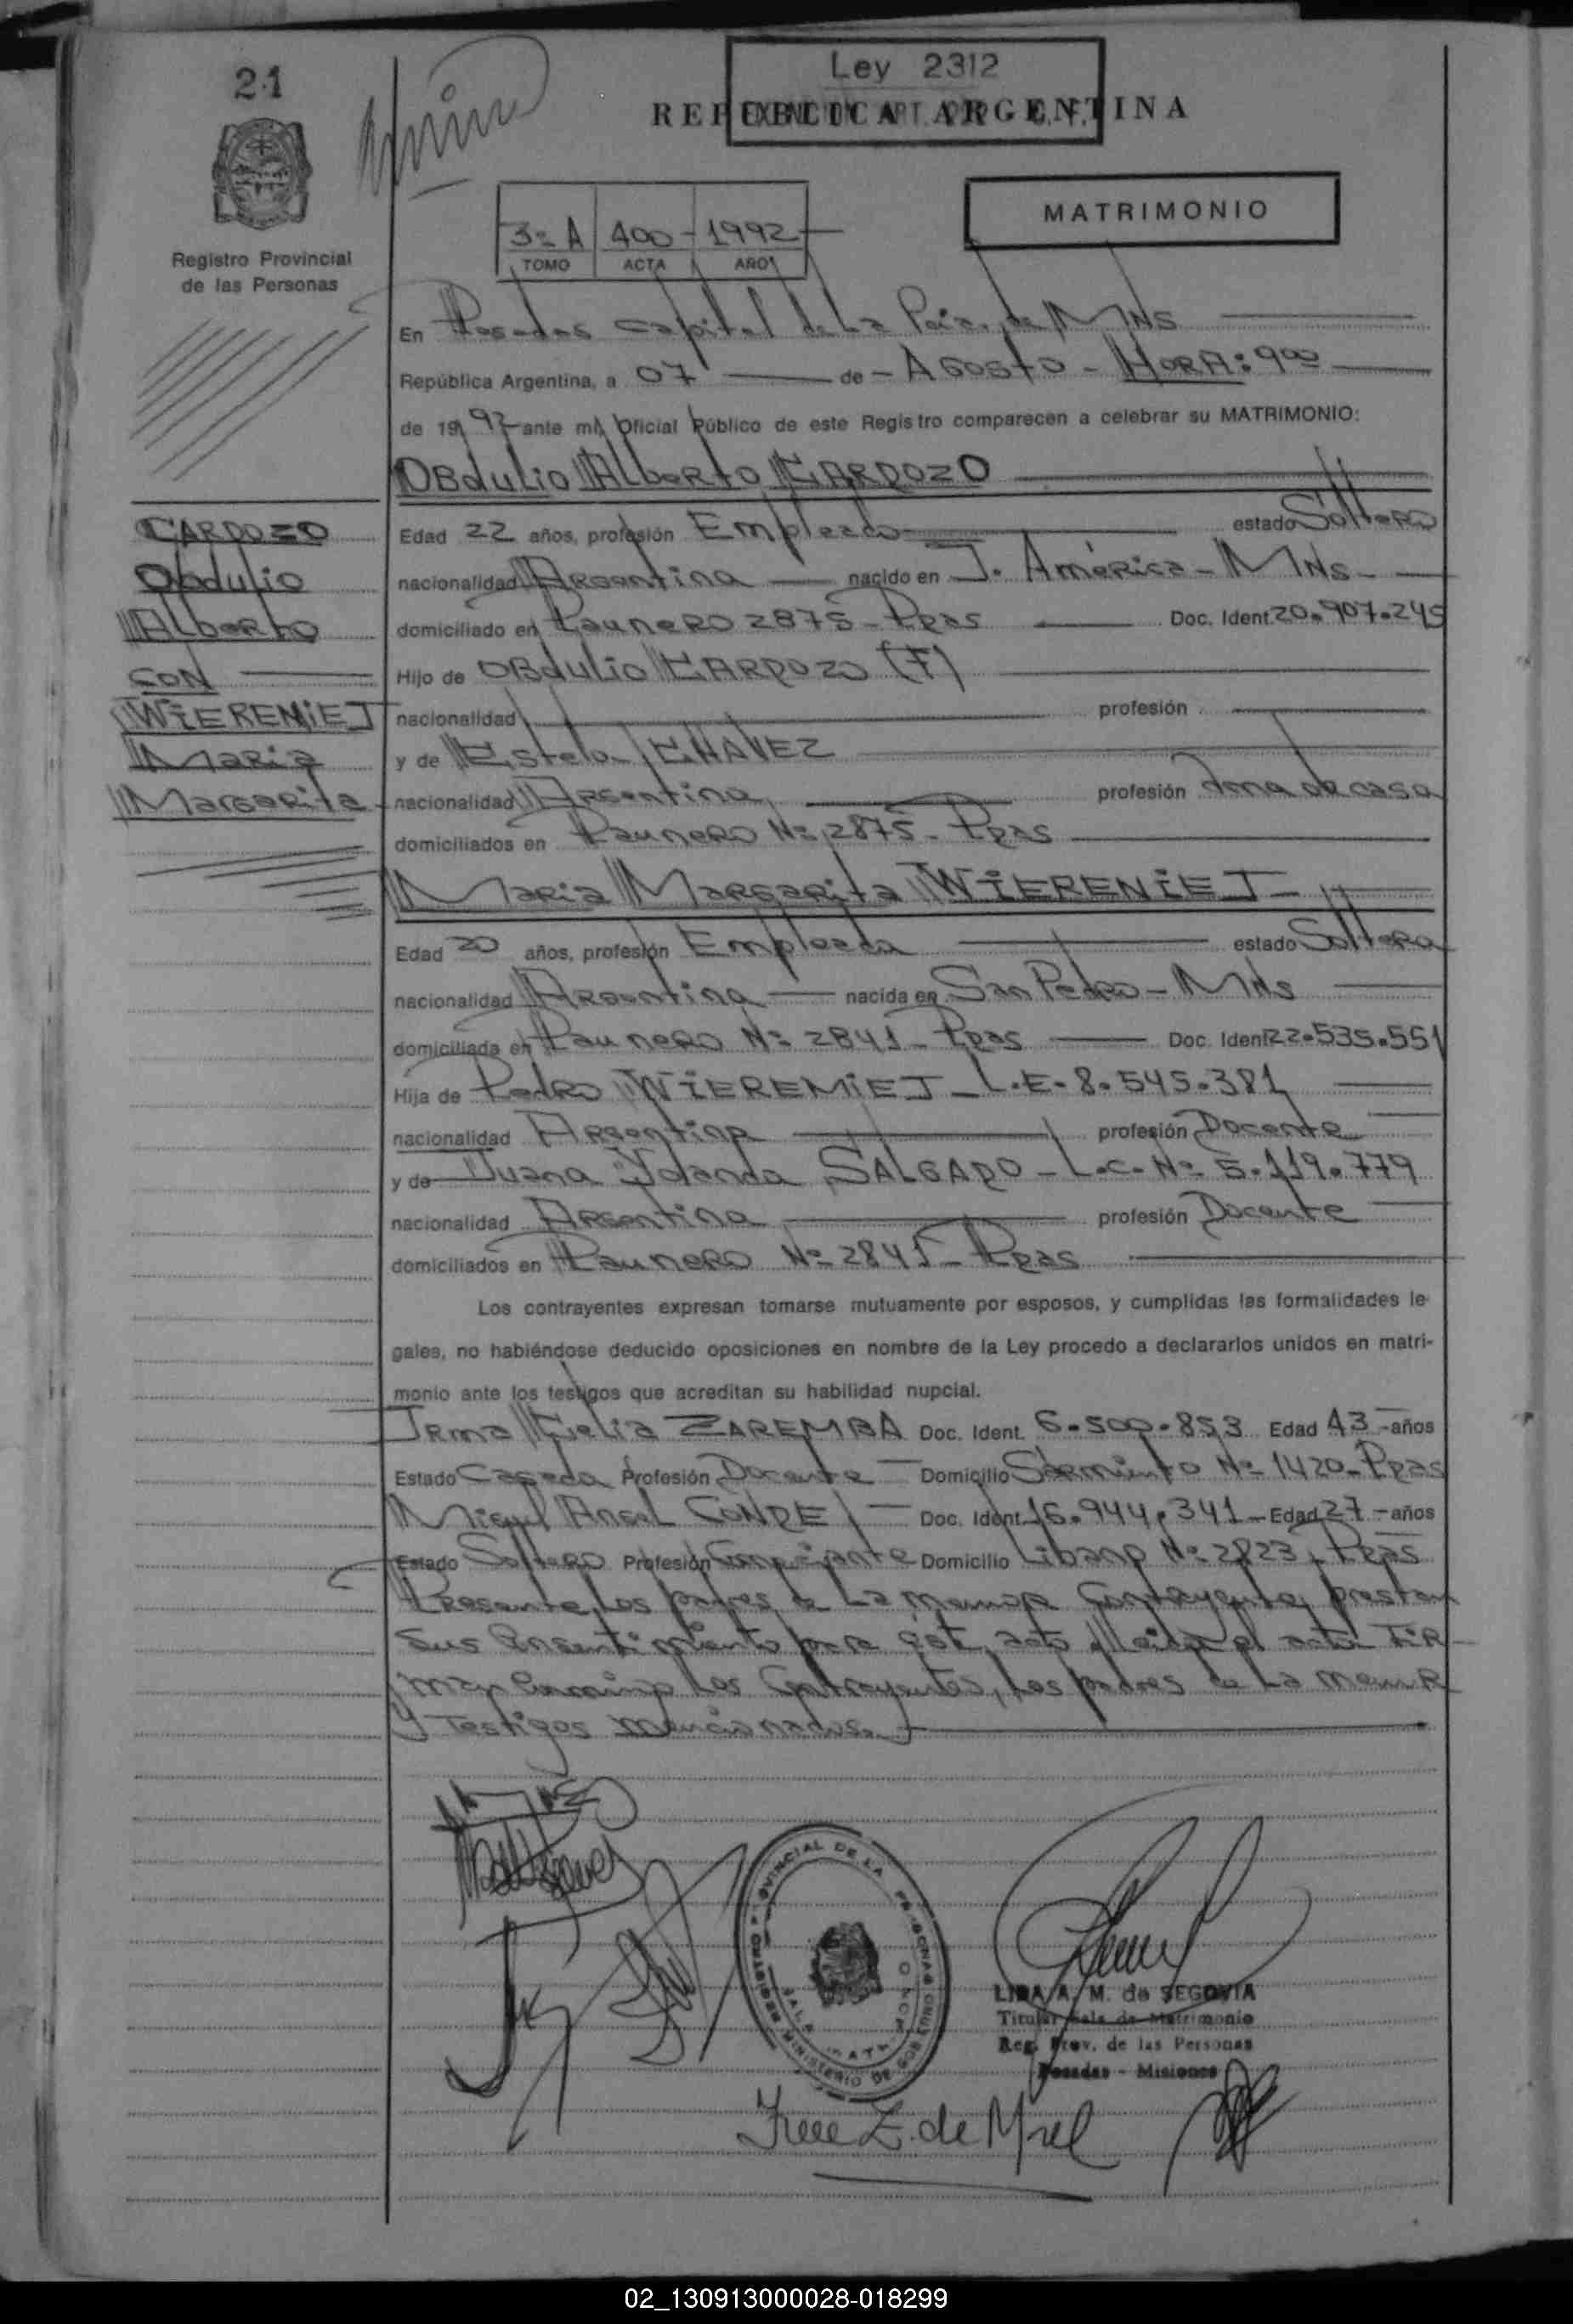 21
Ley 2312
REPUBLICA ARGENTINA
MATRIMONIO
3º A 400 - 1992
TOMO ACTA AÑO
Registro Provincial
de las Personas
En Posadas capital de La Pcia. de MNS
República Argentina, a 07 de - AGOSTO - HORA: 9 00
de 1992 ante mí, Oficial Público de este Registro comparecen a celebrar su MATRIMONIO:
OBdulio Alberto CARDOZO
CARDOZO
Obdulio
Alberto
CON
WiEREMiEJ
Maria
Margarita
Edad 22 años, profesión Empleado estado Soltero
nacionalidad Argentina nacido en J. América - MNS -
domiciliado en Paunero 2875 - Pdas Doc. Ident. 20.907.245
Hijo de OBdulio CARDOZO (F)
nacionalidad profesión
y de Estela CHAVEZ
nacionalidad Argentina profesión Ama de casa
domiciliados en Paunero Nº 2875 - Pdas
Maria Margarita WiERENiEJ -
Edad 20 años, profesión Empleada estado Soltera
nacionalidad Argentina nacida en San Pedro - MNS
domiciliada en Paunero Nº 2841 - Pdas Doc. Ident. 22.535.551
Hija de Pedro WiEREMiEJ - L.E. 8.545.381
nacionalidad Argentina profesión Docente
y de Juana Yolanda SALGADO - L.C. Nº 5.119.779
nacionalidad Argentina profesión Docente
domiciliados en Paunero Nº 2841 - Pdas
Los contrayentes expresan tomarse mutuamente por esposos, y cumplidas las formalidades le-
gales, no habiéndose deducido oposiciones en nombre de la Ley procedo a declararlos unidos en matri-
monio ante los testigos que acreditan su habilidad nupcial.
Irma Celia ZAREMBA Doc. Ident. 6.500.853 Edad 43 - años
Estado Casada Profesión Docente - Domicilio Sarmiento Nº 1420 - Pdas
Miguel Angel CONDE - Doc. Ident. 16.944.341 - Edad 27 - años
Estado Soltero Profesión Comerciante Domicilio Libano Nº 2823 - Pdas
Presente Los padres de La menor Contrayente, prestan
sus Consentimiento para éste acto. Leida el acta FIR-
man Conmigo Los Contrayentes, Los padres de La menor
y Testigos mencionados. -
REGISTRO PROVINCIAL DE LAS PERSONAS
MINISTERIO DE GOB
LIDA A. M. de SEGOVIA
Titular Sala de Matrimonio
Reg. Prov. de las Personas
Posadas - Misiones
02_130913000028-018299